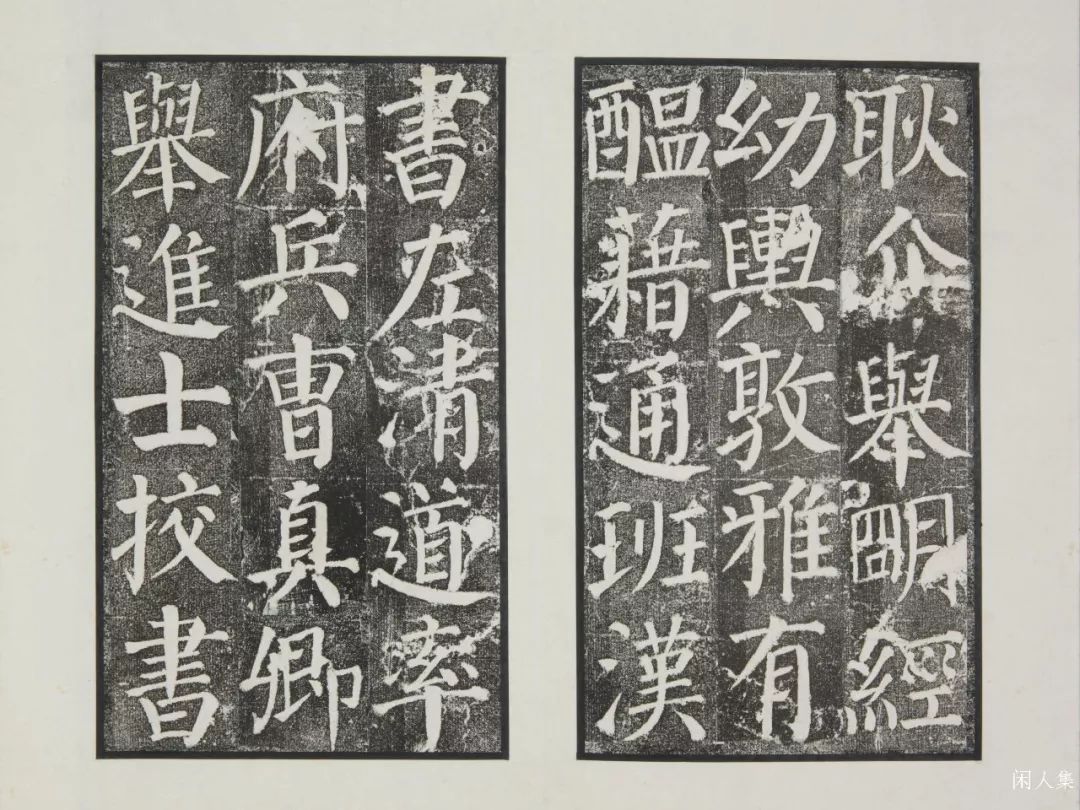 耿介舉明經
幼輿敦雅有
醞藉通班漢
書左清道率
府兵曹真卿
舉進士挍書
闲人集